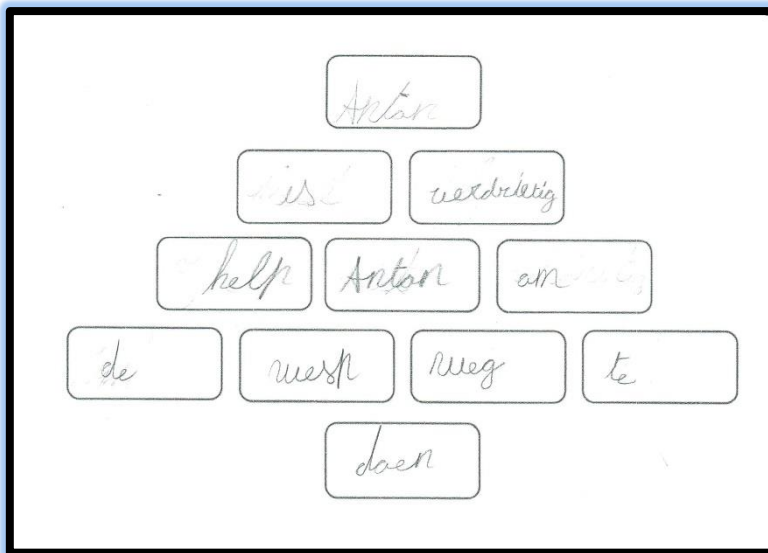 Anton
is verdrietig
help Anton om
de wesp weg te
doen